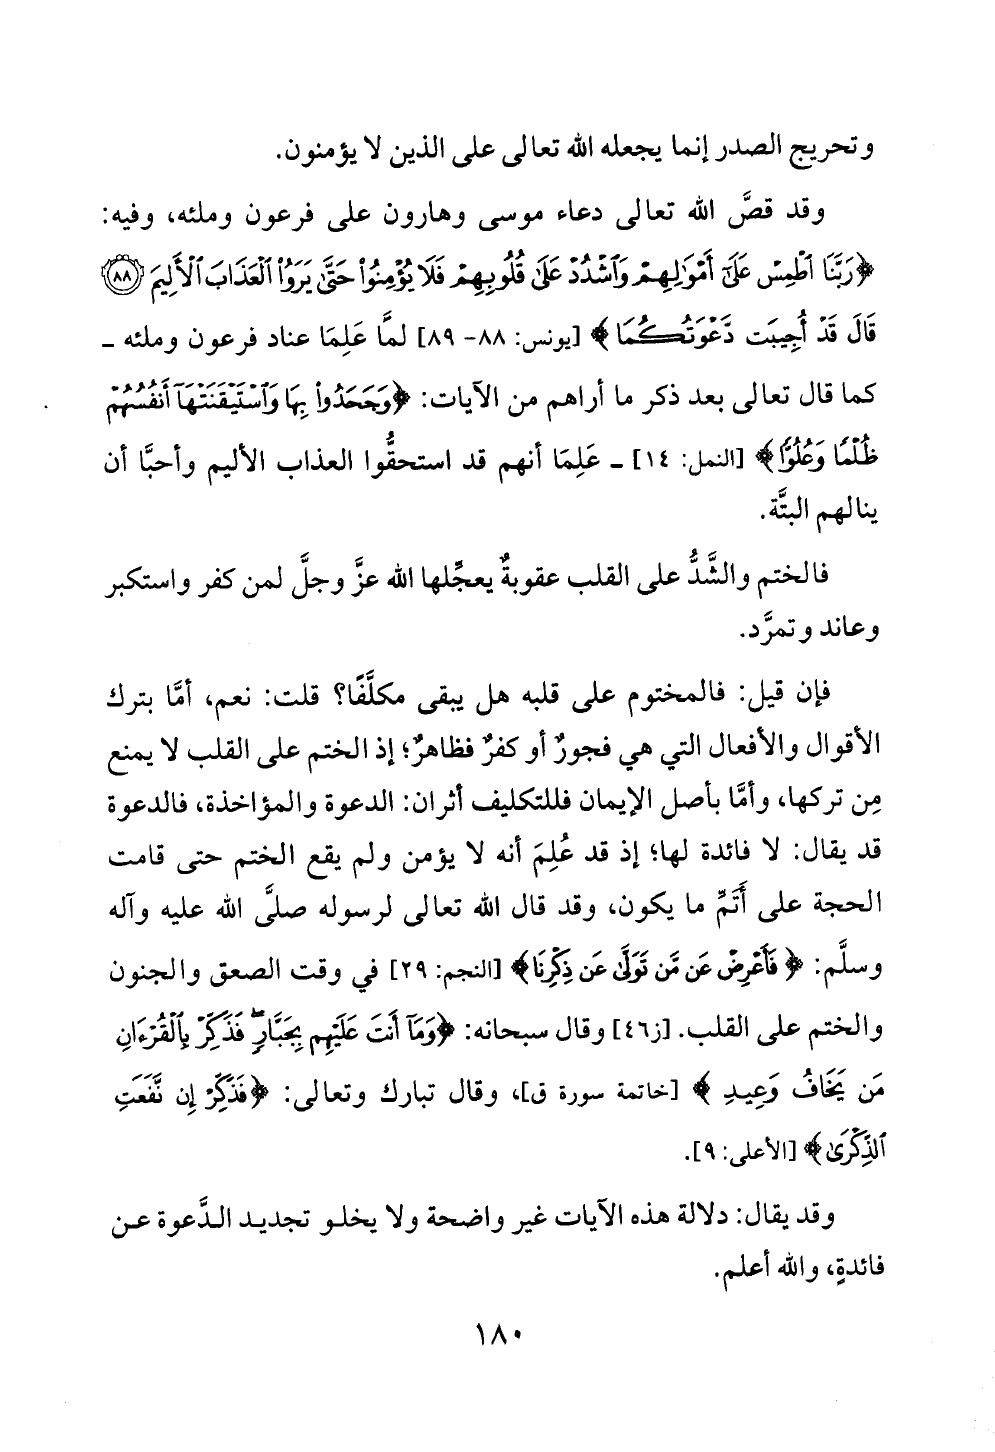 وتحريج الصدر إنما يجعله الله تعالى على الذين لا يؤمنون.
وقد قصَّ الله تعالى دعاء موسى وهارون على فرعون وملئه، وفيه:
﴿رَبَّنَا ٱطْمِسْ عَلَىٰٓ أَمْوَٰلِهِمْ وَٱشْدُدْ عَلَىٰ قُلُوبِهِمْ فَلَا يُؤْمِنُوا۟ حَتَّىٰ يَرَوُا۟ ٱلْعَذَابَ ٱلْأَلِيمَ ٨٨
قَالَ قَدْ أُجِيبَت دَّعْوَتُكُمَا﴾ [يونس: ٨٨- ٨٩] لمَّا عَلِمَا عناد فرعون وملئه ـ
كما قال تعالى بعد ذكر ما أراهم من الآيات: ﴿وَجَحَدُوا۟ بِهَا وَٱسْتَيْقَنَتْهَآ أَنفُسُهُمْ
ظُلْمًا وَعُلُوًّا﴾ [النمل: ١٤] ـ عَلِمَا أنهم قد استحقُّوا العذاب الأليم وأحبَّا أن
ينالهم البتَّة.
فالختم والشَّدُّ على القلب عقوبةٌ يعجِّلها الله عزَّ وجلَّ لمن كفر واستكبر
وعاند وتمرَّد.
فإن قيل: فالمختوم على قلبه هل يبقى مكلَّفًا؟ قلت: نعم، أمَّا بترك
الأقوال والأفعال التي هي فجورٌ أو كفرٌ فظاهرٌ؛ إذ الختم على القلب لا يمنع
مِن تركها، وأمَّا بأصل الإيمان فللتكليف أثران: الدعوة والمؤاخذة، فالدعوة
قد يقال: لا فائدة لها؛ إذ قد عُلِمَ أنه لا يؤمن ولم يقع الختم حتى قامت
الحجة على أَتَمِّ ما يكون، وقد قال الله تعالى لرسوله صلَّى الله عليه وآله
وسلَّم: ﴿فَأَعْرِضْ عَن مَّن تَوَلَّىٰ عَن ذِكْرِنَا﴾ [النجم: ٢٩] في وقت الصعق والجنون
والختم على القلب. [ز٤٦] وقال سبحانه: ﴿وَمَآ أَنتَ عَلَيْهِم بِجَبَّارٍۖ فَذَكِّرْ بِٱلْقُرْءَانِ
مَن يَخَافُ وَعِيدِ﴾ [خاتمة سورة ق]، وقال تبارك وتعالى: ﴿فَذَكِّرْ إِن نَّفَعَتِ
ٱلذِّكْرَىٰ﴾ [الأعلى: ٩].
وقد يقال: دلالة هذه الآيات غير واضحة ولا يخلو تجديد الدَّعوة عن
فائدةٍ، والله أعلم.
١٨٠